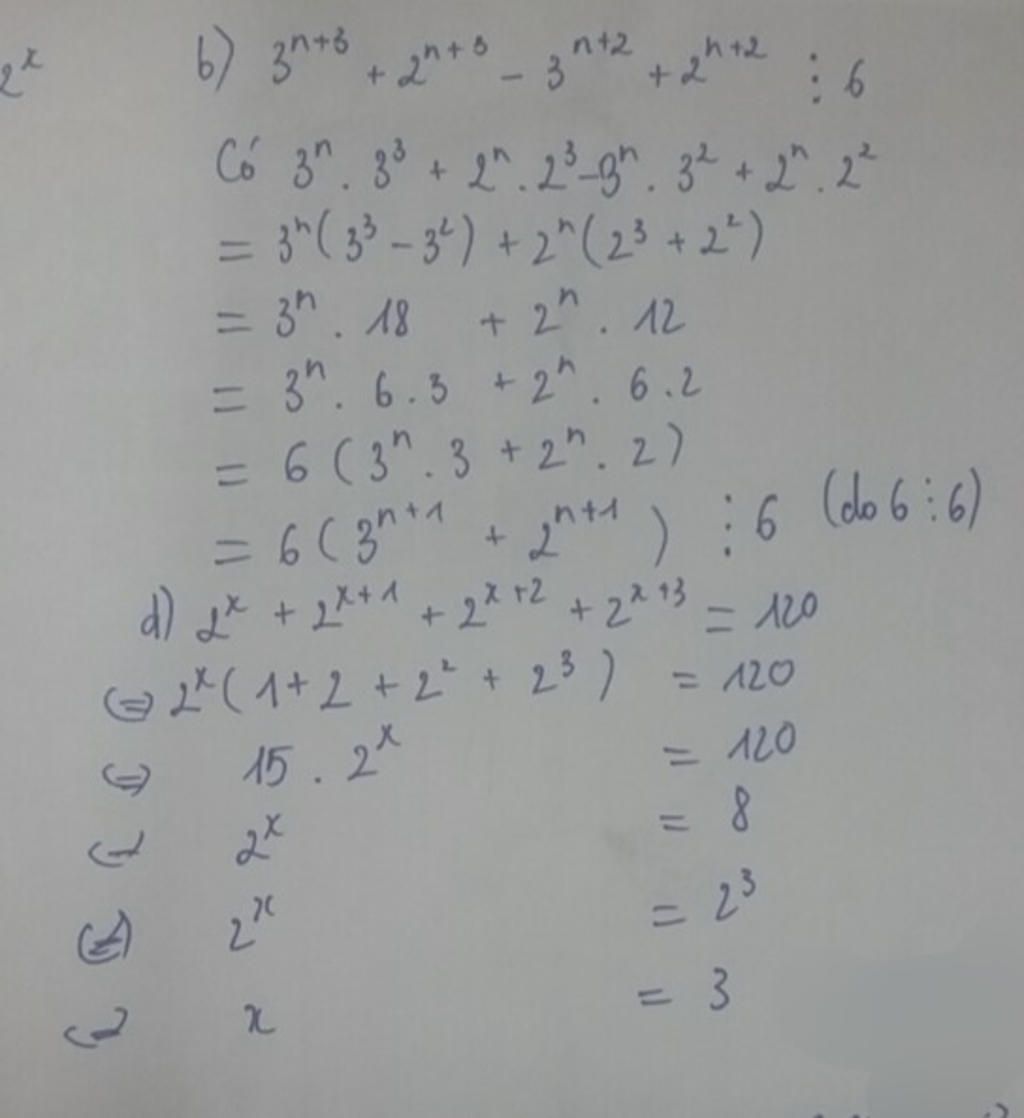 2^x
b) 3^{n+3} + 2^{n+3} - 3^{n+2} + 2^{n+2} ⋮ 6
Có 3^n . 3^3 + 2^n . 2^3 - 3^n . 3^2 + 2^n . 2^2
= 3^n (3^3 - 3^2) + 2^n (2^3 + 2^2)
= 3^n . 18 + 2^n . 12
= 3^n . 6 . 3 + 2^n . 6 . 2
= 6 (3^n . 3 + 2^n . 2)
= 6 (3^{n+1} + 2^{n+1}) ⋮ 6 (do 6 ⋮ 6)
d) 2^x + 2^{x+1} + 2^{x+2} + 2^{x+3} = 120
⇔ 2^x (1 + 2 + 2^2 + 2^3) = 120
⇔ 15 . 2^x = 120
⇔ 2^x = 8
⇔ 2^x = 2^3
⇔ x = 3